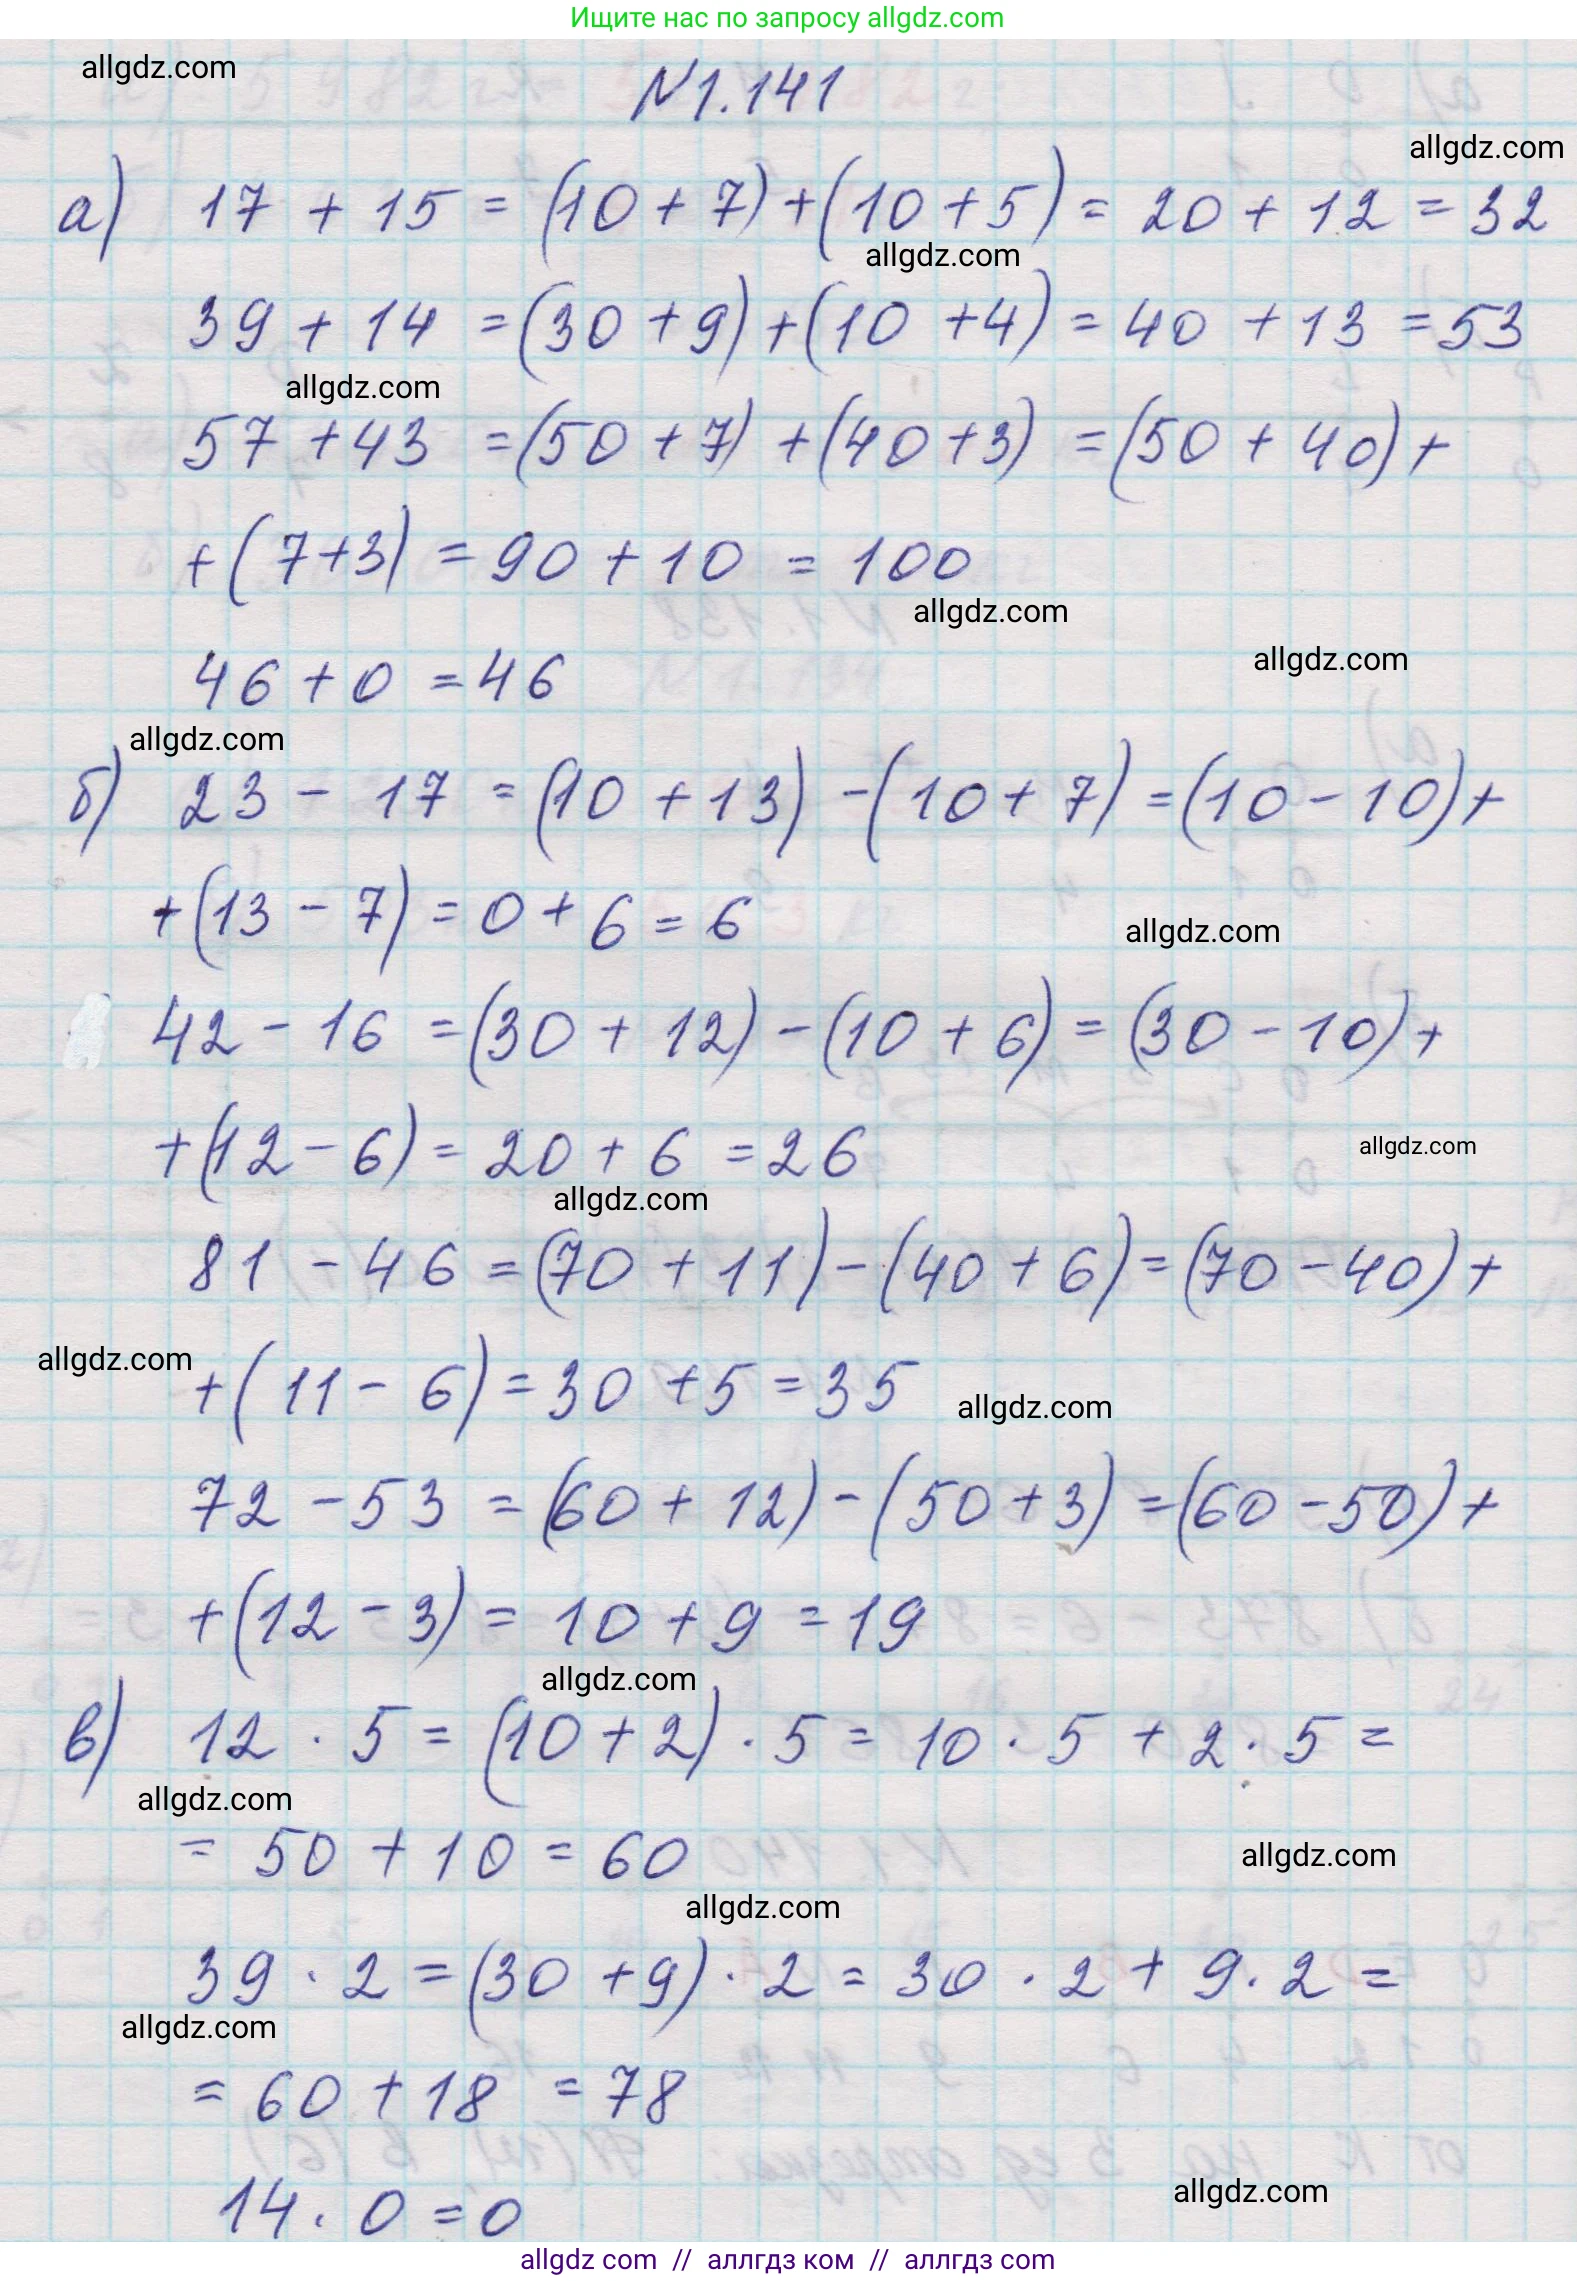 Ищите нас по запросу allgdz.com
allgdz.com
№1.141
allgdz.com
а) 17 + 15 = (10 + 7) + (10 + 5) = 20 + 12 = 32
allgdz.com
39 + 14 = (30 + 9) + (10 + 4) = 40 + 13 = 53
allgdz.com
57 + 43 = (50 + 7) + (40 + 3) = (50 + 40) +
+ (7 + 3) = 90 + 10 = 100
allgdz.com
allgdz.com
46 + 0 = 46
allgdz.com
б) 23 - 17 = (10 + 13) - (10 + 7) = (10 - 10) +
+ (13 - 7) = 0 + 6 = 6
allgdz.com
42 - 16 = (30 + 12) - (10 + 6) = (30 - 10) +
+ (12 - 6) = 20 + 6 = 26
allgdz.com
allgdz.com
81 - 46 = (70 + 11) - (40 + 6) = (70 - 40) +
allgdz.com
+ (11 - 6) = 30 + 5 = 35
allgdz.com
72 - 53 = (60 + 12) - (50 + 3) = (60 - 50) +
+ (12 - 3) = 10 + 9 = 19
allgdz.com
в) 12 · 5 = (10 + 2) · 5 = 10 · 5 + 2 · 5 =
allgdz.com
= 50 + 10 = 60
allgdz.com
allgdz.com
39 · 2 = (30 + 9) · 2 = 30 · 2 + 9 · 2 =
allgdz.com
= 60 + 18 = 78
allgdz.com
14 · 0 = 0
allgdz com // аллгдз ком // аллгдз com